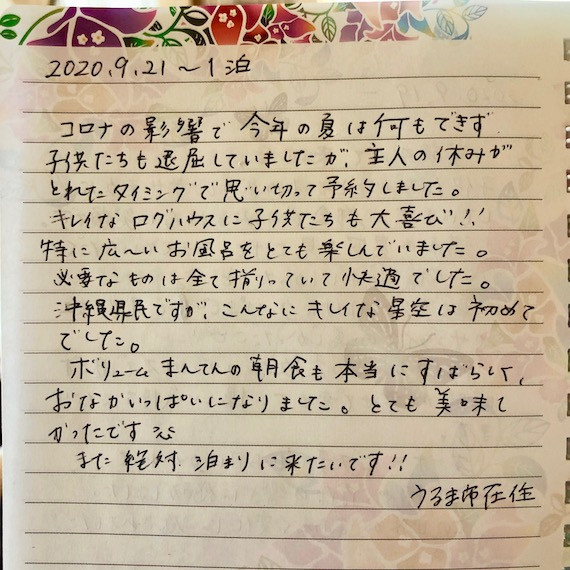 2020.9.21～1泊
コロナの影響で今年の夏は何もできず
子供たちも退屈していましたが、主人の休みが
とれたタイミングで思い切って予約しました。
キレイなログハウスに子供たちも大喜び!!
特に広〜いお風呂をとても楽しんでいました。
必要なものは全て揃っていて快適でした。
沖縄県民ですが、こんなにキレイな星空は初めて
でした。
ボリュームまんてんの朝食も本当にすばらしく、
おなかいっぱいになりました。とても美味し
かったです
また絶対泊まりに来たいです!!
うるま市在住